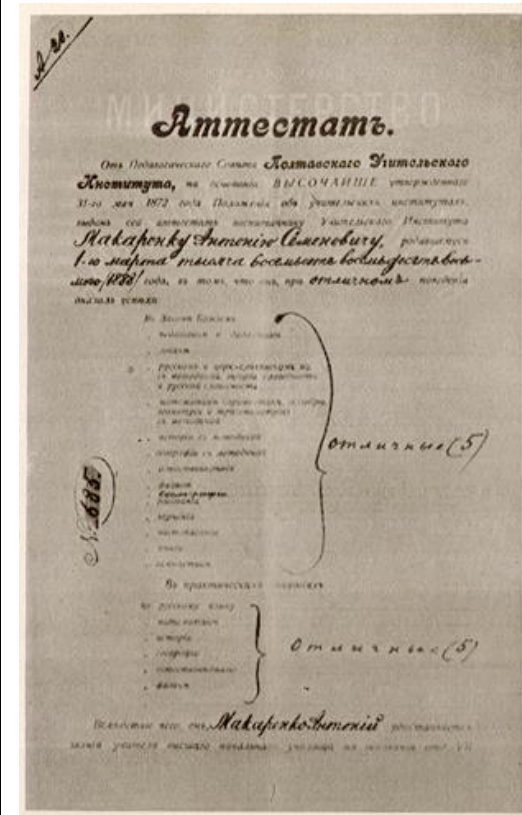 А 20.
МИНИСТЕРСТВО
Аттестатъ.
Отъ Педагогическаго Совѣта Полтавскаго Учительскаго
Института, на основаніи ВЫСОЧАЙШЕ утвержденнаго
31-го мая 1872 года Положенія объ учительскихъ институтахъ,
выданъ сей аттестатъ воспитаннику Учительскаго Института
Макаренку Антонію Семеновичу, родившемуся
1-го марта тысяча восемьсотъ восемьдесятъ вось-
мого /1888/ года, въ томъ, что онъ, при отличномъ поведеніи
оказалъ успѣхи
въ Законѣ Божіемъ
исторіи съ методикой
географіи съ методикой
физикѣ
черченіи
отличные (5)
№ 685
Въ практическихъ занятіяхъ
по русскому языку
исторіи
географіи
физикѣ
отличные (5)
Вслѣдствіе чего онъ, Макаренко Антоній удостаивается
званія учителя высшаго начальнаго училища на основаніи